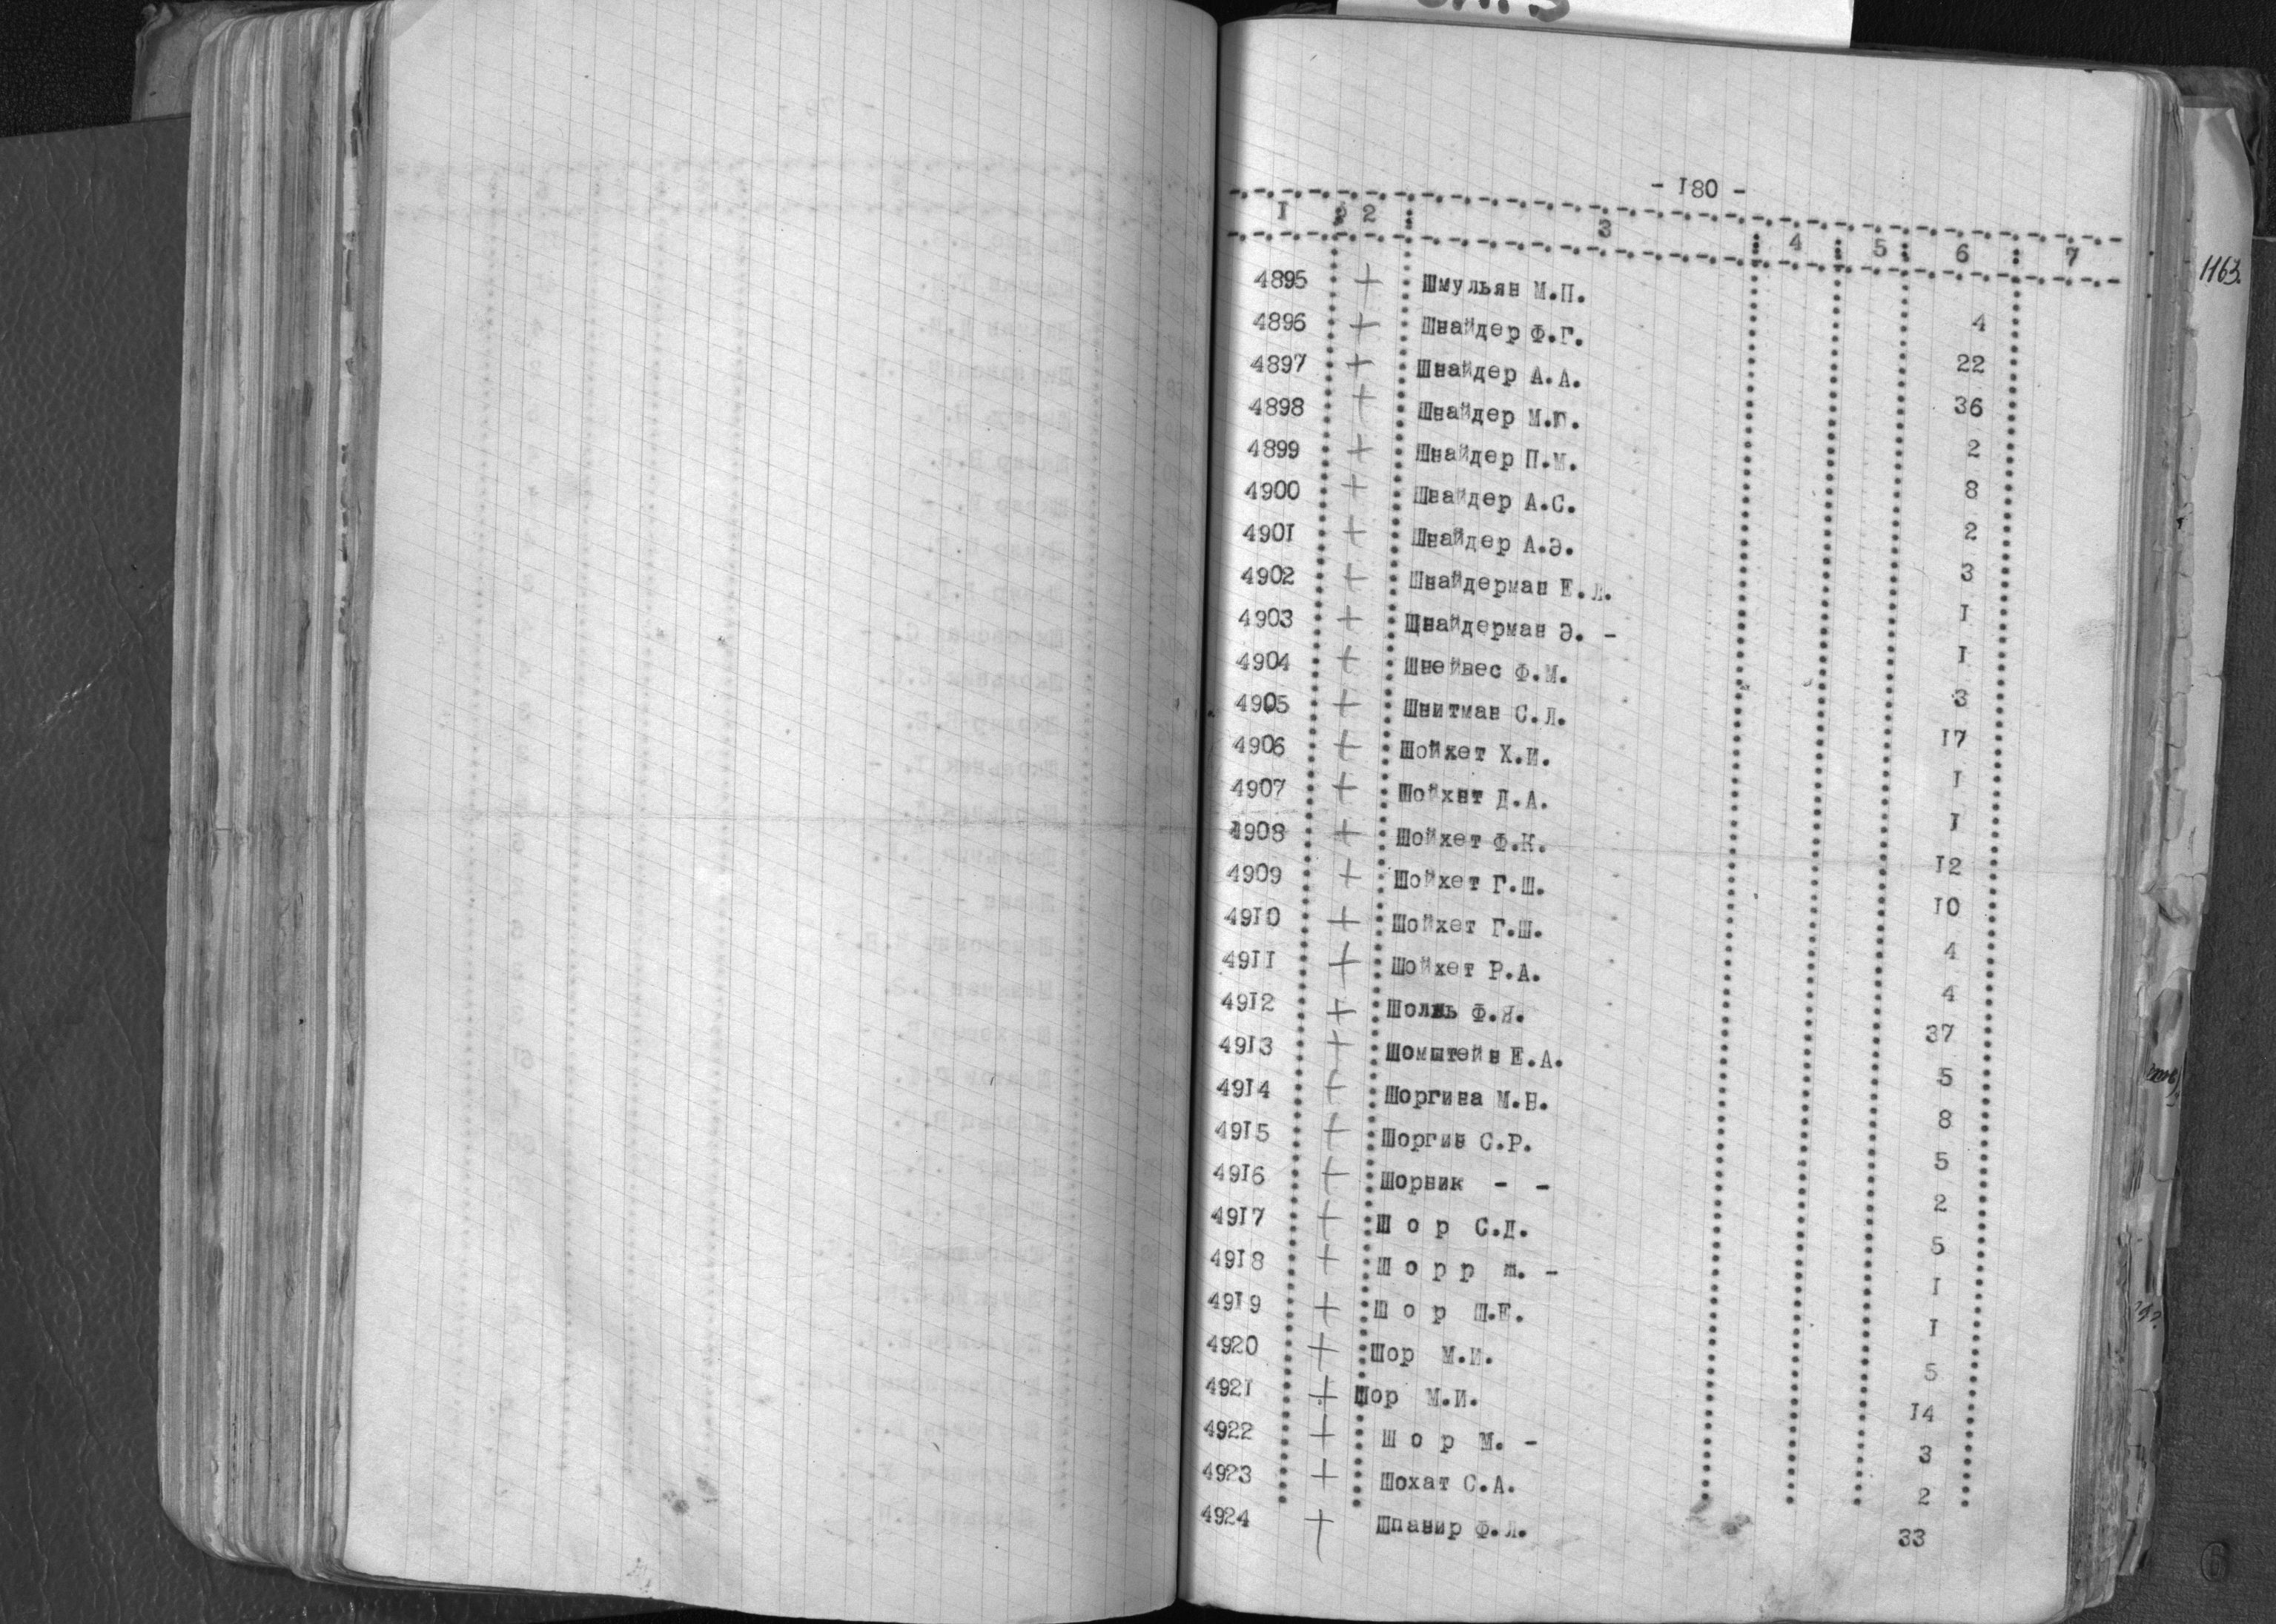 - I80 -
I 2 3 4 5 6 7
1163.
4895 + Шмульян М.П. 4
4896 + Шнайдер Ф.Г. 22
4897 + Шнайдер А.А. 36
4898 + Шнайдер М.Г. 2
4899 + Шнайдер П.М. 8
4900 + Шнайдер А.С. 2
490I + Шнайдер А.Э. 3
4902 + Шнайдерман Е.Л. I
4903 + Шнайдерман Э. - I
4904 + Шнейвес Ф.М. 3
4905 + Шнитман С.Л. I7
4906 + Шойхет Х.И. I
4907 + Шойхет Д.А. I
4908 + Шойхет Ф.К. I2
4909 + Шойхет Г.Ш. I0
49I0 + Шойхет Г.Ш. 4
49II + Шойхет Р.А. 4
49I2 + Ф.Я. 37
49I3 + Шомштейн Е.А. 5
49I4 + Шоргина М.Н. 8
49I5 + Шоргин С.Р. 5
49I6 + Шорник - - 2
49I7 + Ш о р С.Д. 5
49I8 + Ш о р р ш. - I
49I9 + Ш о р Ш.Е. I
4920 + Шор М.И. 5
492I + Шор М.И. I4
4922 + Ш о р М. - 3
4923 + Шохат С.А. 2
4924 + Шпанир Ф.Л. 33